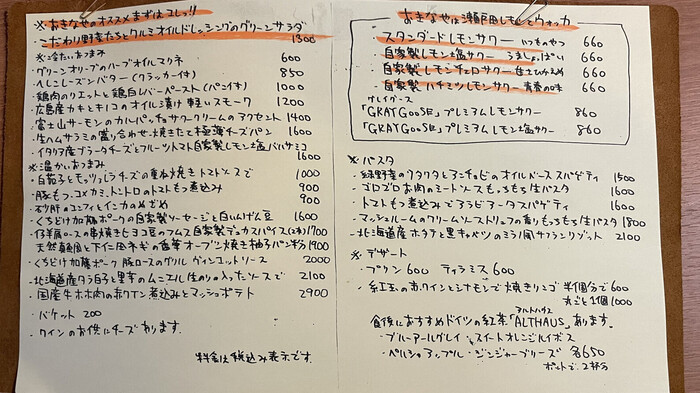 ※おきなやのオススメまずはコレっ!!
・こだわり野菜たちとクルミオイルドレッシングのグリーンサラダ 1300
※冷たいおつまみ
・グリーンオリーブのハーブオイルマリネ 600
・へしこレーズンバター(クラッカー付) 850
・鶏肉のリエットと鶏白レバーペースト(パン付) 1000
・広島産カキとキノコのオイル漬け 軽いスモーク 1200
・富士山サーモンのカルパッチョ サワークリームのアクセント 1400
・生ハムサラミの盛り合わせ・焼きたて極薄チーズパン 1600
・イタリア産ブラータチーズとフルーツトマト 自家製レモン塩バルサミコ 1600
※温かいおつまみ
・白茄子とモッツァレラチーズの重ね焼きトマトソースで 1000
・豚もつ、コメカミ、トントロのトマトもつ煮込み 900
・砂肝のコンフィとインカのめざめ 900
・くちどけ加藤ポークの自家製ソーセージと白いんげん豆 1600
・仔羊肩ロースの串焼きヒヨコ豆のフムス 自家製デュカスパイス(2本) 1700
・天然真鯛と下仁田ネギの香草オーブン焼き 柚子パン粉 1900
・くちどけ加藤ポーク 豚ロースのグリル ヴィンコットソース 2000
・北海道産タラ白子と里芋のムニエル 生のりの入ったソースで 2100
・国産牛ホホ肉の赤ワイン煮込みとマッシュポテト 2900
・バケット 200
・ワインのお供にチーズあります。
料金は税込み表示です。
おきなやは瀬戸田レモンとウォッカ
・スタンダードレモンサワー いつものやつ 660
・自家製レモン塩サワー うましょっぱい 660
・自家製レモンチェロサワー 甘さひかえめ 660
・自家製ハチミツレモンサワー 青春の味 660
グレイグース
・「GRAY GOOSE」プレミアムレモンサワー 860
・「GRAY GOOSE」プレミアムレモン塩サワー 860
※パスタ
・緑野菜のクタクタとアンチョビのオイルベーススパゲティ 1500
・ゴロゴロお肉のミートソース もっちもち生パスタ 1600
・トマトもつ煮込みでアラビアータスパゲティ 1600
・マッシュルームのクリームソーストリュフの香り もっちもち生パスタ 1800
・北海道産ホタテと黒キャベツのミラノ風サフランリゾット 2100
※デザート
・プリン 600 ティラミス 600
・紅玉の赤ワインとシナモンで焼きリンゴ 半個分で 600
丸ごと1個 1000
アルトハウス
食後におすすめドイツの紅茶「ALTHAUS」あります。
・ブルーアールグレイ・スイートオレンジルイボス
・ペルシャアップル・ジンジャーブリーズ 各650
ポットで2杯分